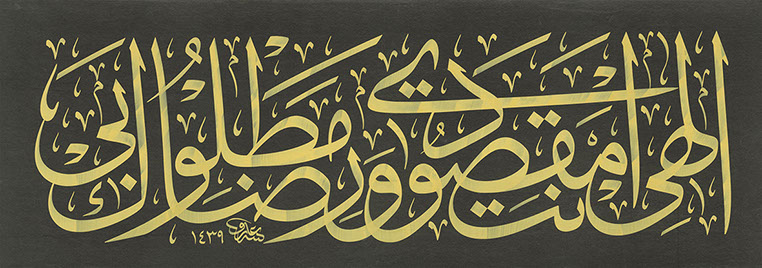 الهي انت مقصودي ورضاك مطلوبي
١٤٣٩